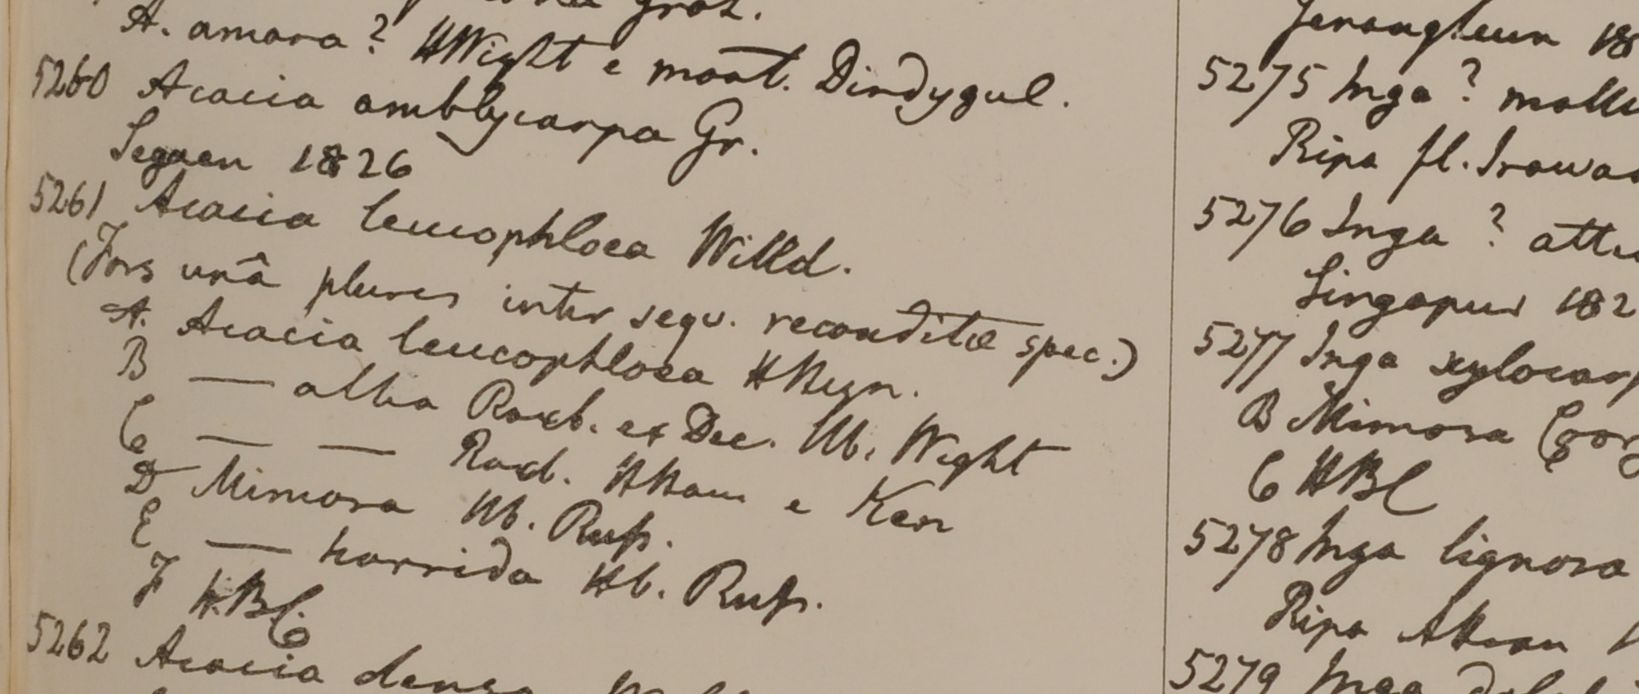 A. amara? HWight e mont. Dindygul.
5260 Acacia amblycarpa Gr.
Segaen 1826
5261 Acacia leucophloea Willd.
(Fors unâ plures inter sequ. reconditæ spec.)
A. Acacia leucophloea HHeyn.
B — alba Roxb. ex Dec. Hb. Wight
C — — Roxb. HHam e Ken
D Mimosa Hb. Russ.
E — horrida Hb. Russ.
F HBC.
5262 Acacia densa
5275 Inga? molli
Ripa fl. Irawad
5276 Inga? atte
Singapur 182
5277 Inga xylocarp
B Mimosa
C HBC
5278 Inga lignosa
Ripa Attran
5279 Inga